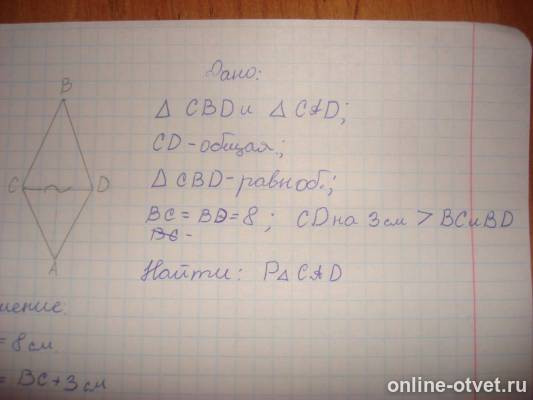 Дано:
B
△ CBD и △ CAD;
CD-общая;
C D
△ CBD-равноб.;
BC = BD = 8 ; CD на 3 см > BC и BD
BC -
A
Найти: P△CAD
шение:
= 8 см
= BC + 3 см
online-otvet.ru